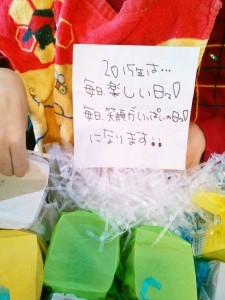 2015年は…
毎日楽しい日っ!
毎日、笑顔がいっぱいの日っ!
になります!!